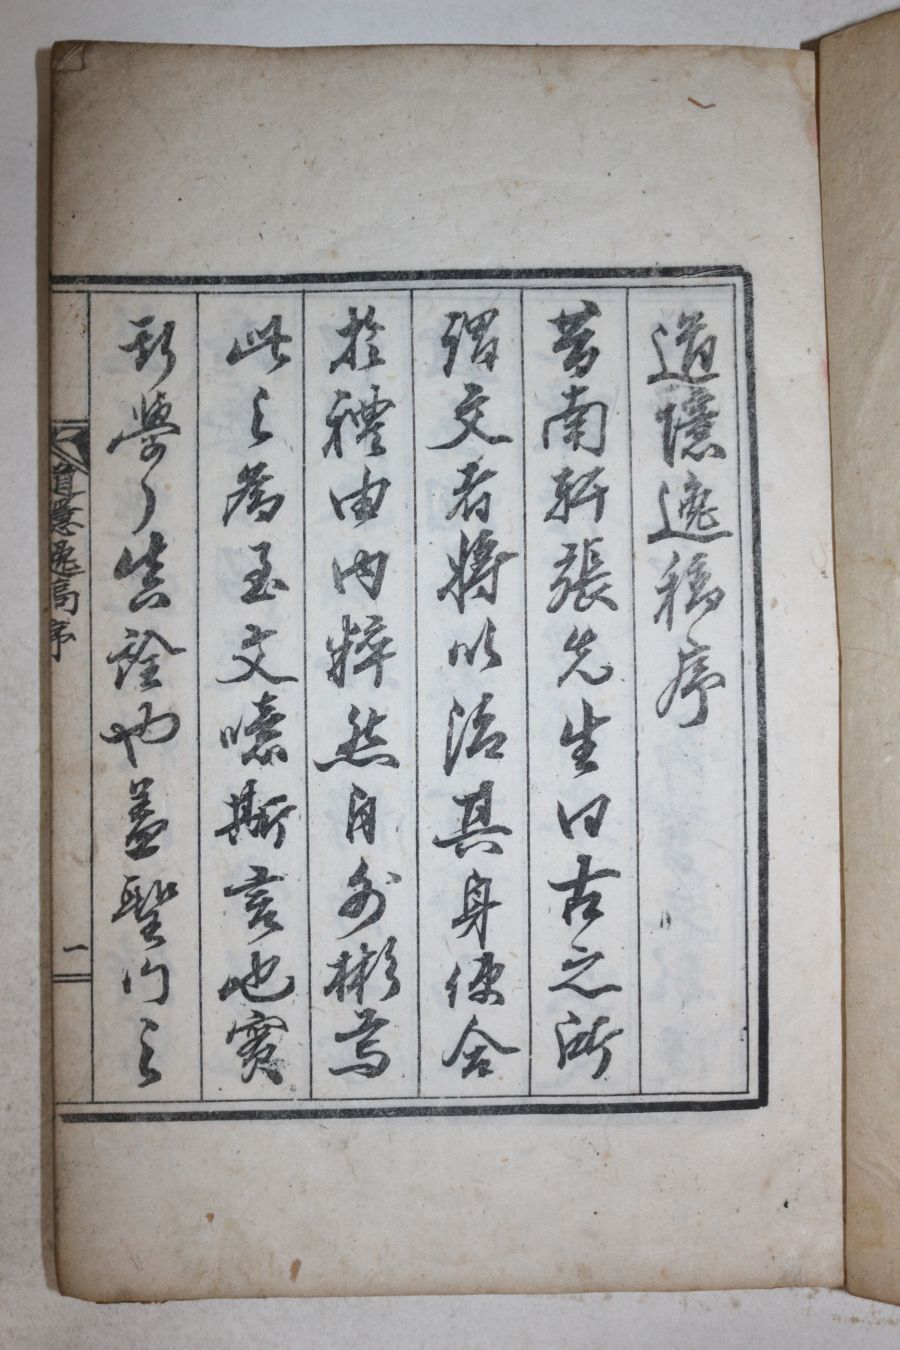 道隱逸稿序
昔南軒張先生曰古之所
謂文者將以治其身使合
於禮由內粹然自外彬焉
此之為至文噫斯言也實
斯學之真詮也蓋聖門之
道隱逸稿序
一